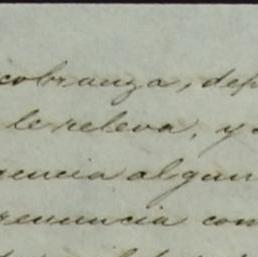 cobranza, dep
le releva, y
gencia algun
renuncia con